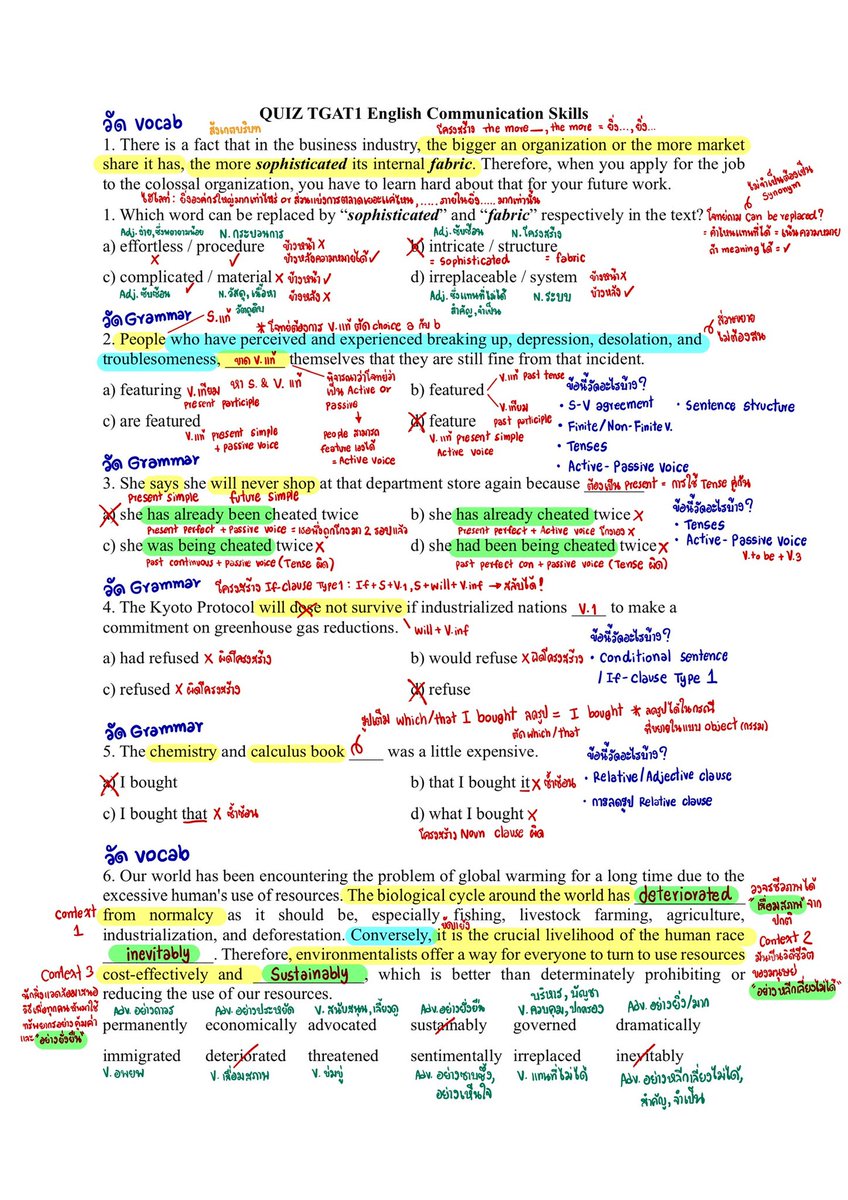 QUIZ TGAT1 English Communication Skills
วัด vocab
สังเกตบริบท
โครงสร้าง the more __, the more = ยิ่ง..., ยิ่ง...
1. There is a fact that in the business industry, the bigger an organization or the more market
share it has, the more sophisticated its internal fabric. Therefore, when you apply for the job
to the colossal organization, you have to learn hard about that for your future work.
ไม่จำเป็นต้องเป็น
Synonym
ไฮไลท์: ยิ่งองค์กรใหญ่มากเท่าไหร่ or ส่วนแบ่งการตลาดเยอะแค่ไหน, ..... ภายในยิ่ง..... มากเท่านั้น
1. Which word can be replaced by “sophisticated” and “fabric” respectively in the text?
โจทย์ถาม can be replaced?
= คำไหนแทนที่ได้ = เน้นความหมาย
ถ้า meaning ได้ = ✓
Adj. ง่าย, ซึ่งพยายามน้อย N. กระบวนการ
Adj. ซับซ้อน N. โครงสร้าง
a) effortless / procedure ข้างหน้า X
X ✓ ข้างหลังความหมายได้ ✓
b) intricate / structure
= sophisticated = fabric
c) complicated / material X ข้างหน้า ✓
Adj. ซับซ้อน N. วัสดุ, เนื้อหา ข้างหลัง X
วัตถุดิบ
d) irreplaceable / system ข้างหน้า X
Adj. ซึ่งแทนที่ไม่ได้ N. ระบบ ข้างหลัง ✓
สำคัญ, จำเป็น
วัด Grammar
S. แท้
* โจทย์ต้องการ V. แท้ ตัด choice a กับ b
2. People who have perceived and experienced breaking up, depression, desolation, and
ส่วนขยาย
ไม่ต้องสน
troublesomeness, ขาด V. แท้ themselves that they are still fine from that incident.
a) featuring V. เทียม หา S. & V. แท้
present participle
พิจารณาว่าโจทย์ว่า
เป็น Active or
Passive
people สามารถ
feature เองได้
= Active voice
b) featured
V. แท้ past tense
V. เทียม
past participle
c) are featured
V. แท้ present simple
+ passive voice
d) feature
V. แท้ present simple
Active voice
ข้อนี้วัดอะไรบ้าง?
• S-V agreement • Sentence structure
• Finite/Non-Finite V.
• Tenses
• Active-Passive voice
วัด Grammar
3. She says she will never shop at that department store again because ต้องเป็น Present = การใช้ Tense คู่กัน
present simple future simple
a) she has already been cheated twice
Present perfect + Passive voice = เธอถูกโกงมา 2 รอบแล้ว
b) she has already cheated twice X
Present perfect + Active voice
c) she was being cheated twice X
past continuous + passive voice (Tense ผิด)
d) she had been being cheated twice X
past perfect con + passive voice (Tense ผิด)
ข้อนี้วัดอะไรบ้าง?
• Tenses
• Active-Passive voice
V. to be + V.3
วัด Grammar
โครงสร้าง If-clause Type1 : If + S + V.1, S + will + V.inf → สลับได้!
4. The Kyoto Protocol will dose not survive if industrialized nations V.1 to make a
commitment on greenhouse gas reductions.
will + V.inf
a) had refused X ผิดโครงสร้าง
b) would refuse X ผิดโครงสร้าง
c) refused X ผิดโครงสร้าง
d) refuse
ข้อนี้วัดอะไรบ้าง?
• Conditional sentence
/ If-clause Type 1
วัด Grammar
รูปเต็ม which/that I bought ลดรูป = I bought * ลดรูปได้ในกรณี
ตัด which/that
ที่ขยายในแบบ object (กรรม)
5. The chemistry and calculus book ____ was a little expensive.
a) I bought
b) that I bought it X ซ้ำซ้อน
c) I bought that X ซ้ำซ้อน
d) what I bought X
โครงสร้าง Noun clause ผิด
ข้อนี้วัดอะไรบ้าง?
• Relative/Adjective clause
• การลดรูป Relative clause
วัด vocab
6. Our world has been encountering the problem of global warming for a long time due to the
excessive human's use of resources. The biological cycle around the world has deteriorated
from normalcy as it should be, especially fishing, livestock farming, agriculture,
industrialization, and deforestation. Conversely, it is the crucial livelihood of the human race
inevitably. Therefore, environmentalists offer a way for everyone to turn to use resources
cost-effectively and Sustainably, which is better than determinately prohibiting or
reducing the use of our resources.
Context
1
วงจรชีวภาพได้
"เสื่อมสภาพ" จาก
ปกติ
ขัดแย้ง
Context 2
มันเป็นวิถีชีวิต
ของมนุษย์
"อย่างหลีกเลี่ยงไม่ได้"
Context 3
นักสิ่งแวดล้อมเสนอ
วิธีเพื่อทุกคนหันมาใช้
ทรัพยากรอย่างคุ้มค่า
และ "อย่างยั่งยืน"
Adv. อย่างถาวร Adv. อย่างประหยัด V. สนับสนุน, Adv. อย่างยั่งยืน บริหาร, บัญชา
V. ควบคุม, ปกครอง Adv. อย่างยิ่ง/มาก
permanently economically advocated sustainably governed dramatically
immigrated deteriorated threatened sentimentally irreplaced inevitably
V. อพยพ V. เสื่อมสภาพ V. ข่มขู่ Adv. อย่างซาบซึ้ง, V. แทนที่ไม่ได้ Adv. อย่างหลีกเลี่ยงไม่ได้,
อย่างเห็นใจ สำคัญ, จำเป็น